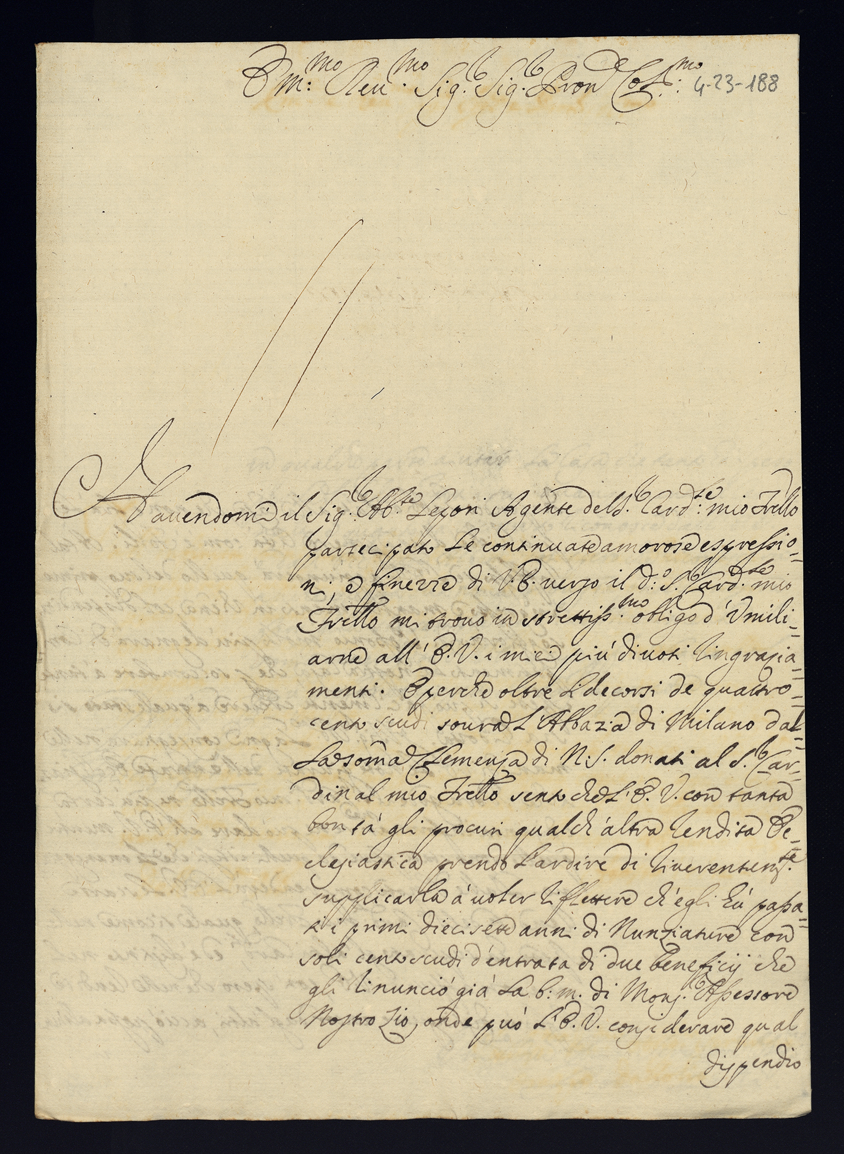 Em:mo Reu:mo Sig.r Sig.r Pron Col:mo 4-23-188
Hauendomi il Sig.r Ab.te Leponi Agente del S.r Card:le mio Frello
partecipato le continuate amorose espressio=
ni, e finezze di V.E. verso il d:o S.r Card:le mio
Frello mi trovo in strettiss:mo obligo d'Vmili=
arne all' E.V. i miei più diuoti ringrazia=
menti. E perche oltre li decorsi de quattro=
cento scudi soura l'Abbazia di Milano dal=
la somã Clemenza di N.S. donati al S.r Car=
dinal mio Frello sento che l'E.V. con tanta
bontà gli procuri qualch'altra rendita Ec=
clesiastica prendo l'ardire di riuerentem.te
supplicarla à uoler riflettere ch'egli hà passa=
ti i primi diecisette anni di Nunziature con
soli cento scudi d'entrata di due beneficij che
gli rinunciò già la b.m. di Mons.r Assessore
Nostro Zio, onde può l'E.V. considerare qual
dispendio